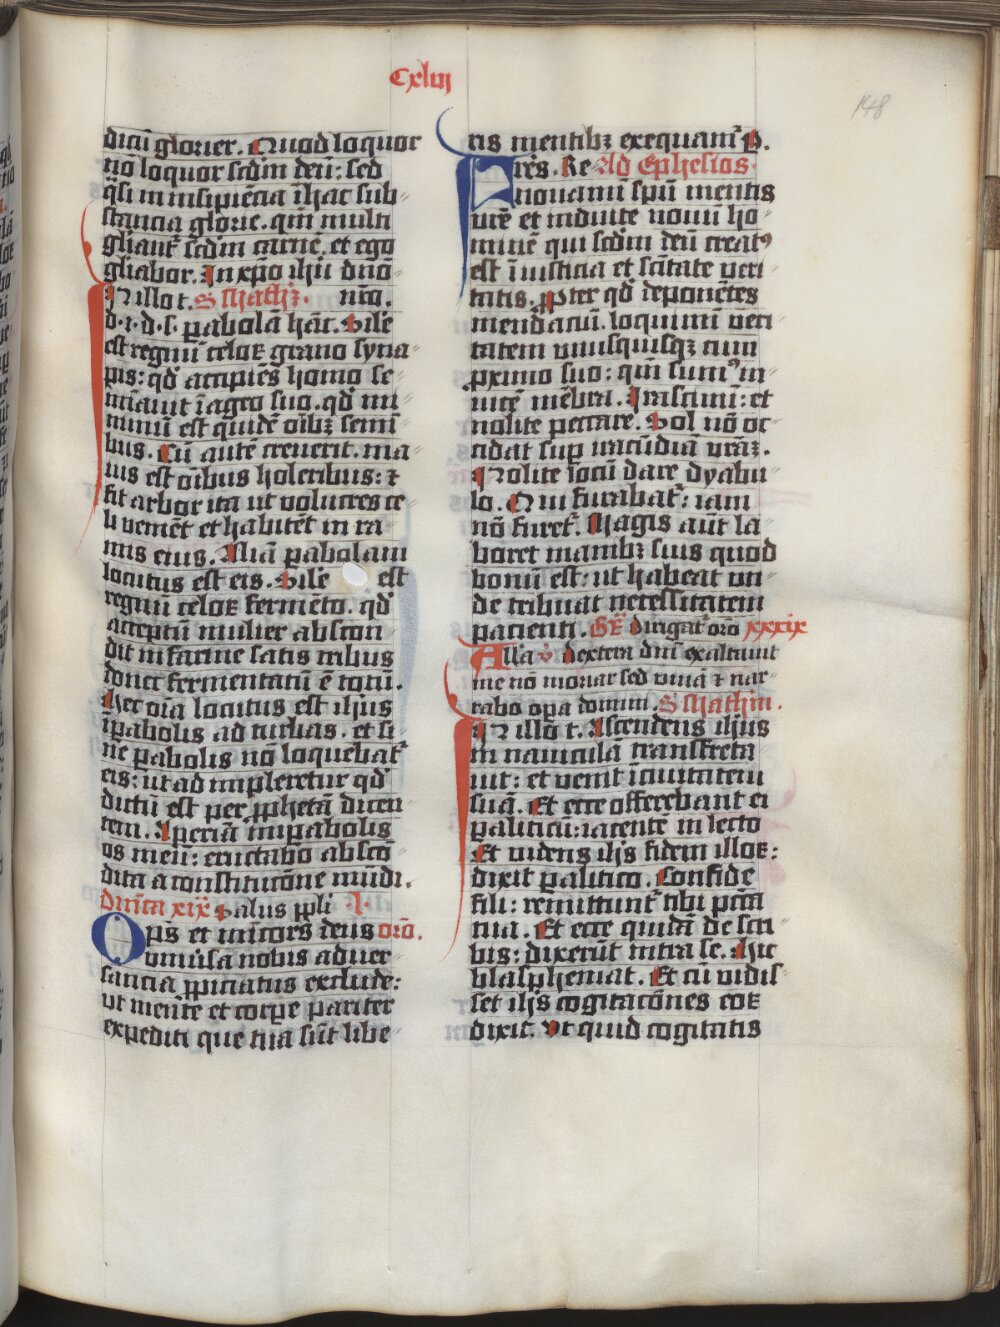 Cxliij
148
dicū glorier. Quod loquor
nō loquor scdm deū: sed
q̄si in insipiēcia ī hac sub
stancia glorie. qm̄ multi
gliant᷑ scdm carnē. et ego
gliabor. In xpo ihū dnō
In illo t. S Mathꝫ. nrō.
d. i. d. s. ꝑabolā hāc. Sile
est regnū celoꝝ grano syna
pis: qd̓ accipiēs homo se
minauit ī agro suo. qd̓ mi
nimū est quidē oībꝫ semi
bus. Cū autē creuerit. ma
ius est oībus holeribus: ⁊
fit arbor ita ut volucres ce
li veniēt et habitēt in ra
mis eius. Aliā ꝑabolam
locutus est eis. Sile est
regnū celoꝝ fermēto. qd̓
acceptū mulier abscon
dit in farine satis tribus
donec fermentatū ē totū.
Hec oīa locutus est ihūs
ī ꝑabolis ad turbas. et si
ne ꝑabolis nō loquebat᷑
eis: ut ad impleretur qd̓
dictū est per ꝓphetā dicen
tem. Aperiā in ꝑabolis
os meū: eructabo abscō
dita a constitucōne mūdi.
dnīca xix Salus ppli I.
Opš et mīcors deus orō.
vniūsa nobis aduer
sancia ꝓpiciatus exclude:
vt mente et corpe pariter
expediti que tua sūt libe
ris mentibꝫ exequam᷑ P.
Frēs. Re Ad Ephesios
nouamini spū mentis
vrē et induite nouū ho
minē qui scdm deū creatꝰ
est ī iusticia et scītate veri
tatis. Pter qd̓ deponētes
mendaciū. loquimī veri
tatem vnusquisqꝫ cum
ꝓximo suo: qm̄ sumꝰ in
uicē mēbra. Irascimī: et
nolite peccare. Sol nō oc
cidat sup iracūdiā vrāꝫ.
Nolite locū dare dyabu
lo. Qui furabat᷑: iam
nō furet᷑. Magis aūt la
boret manibꝫ suis quod
bonū est: ut habeat vn
de tribuat necessitatem
pacienti. Gr̄ Dirigat᷑ orō xxxix
Alla v̓ Dextera dnī exaltauit
me nō moriar sed viuā ⁊ nar
rabo opa domini. S Mathm̄.
In illo t. Ascendens ihūs
in nauiculā transfreta
uit: et venit ī ciuitatem
suā. Et ecce offerebant ei
paliticū: iacentē in lecto
Et videns ihs fidem illoꝝ:
dixit ꝑalitico. Confide
fili: remittunt᷑ tibi pctā
tua. Et ecce quidā de scri
bis: dixerūt intra se. Hic
blasphemat. Et cū vidis
set ihs cogitacōnes eoꝝ
dixit. Vt quid cogitatis